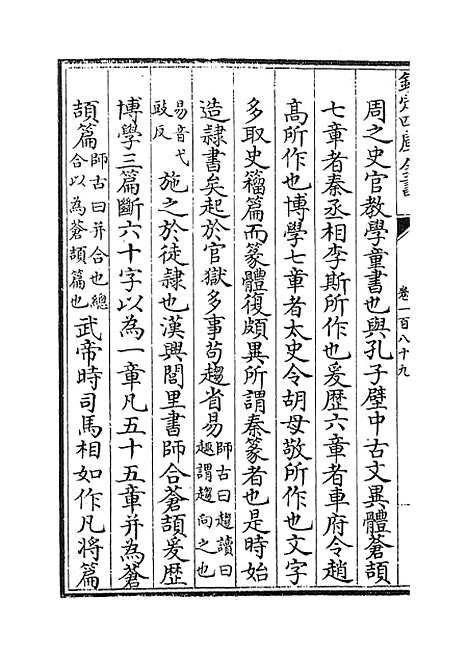 欽定四庫全書
卷一百八十九
周之史官教學童書也與孔子壁中古文異體蒼頡
七章者秦丞相李斯所作也爰歴六章者車府令趙
高所作也博學七章者太史令胡母敬所作也文字
多取史籀篇而篆體復頗異所謂秦篆者也是時始
造隸書矣起於官獄多事苟趨省易師古曰趨讀曰趣謂趨向之也
易音弋豉反施之於徒隸也漢興閭里書師合蒼頡爰歴
博學三篇斷六十字以為一章凡五十五章并為蒼
頡篇師古曰并合也總合以為蒼頡篇也武帝時司馬相如作凡將篇